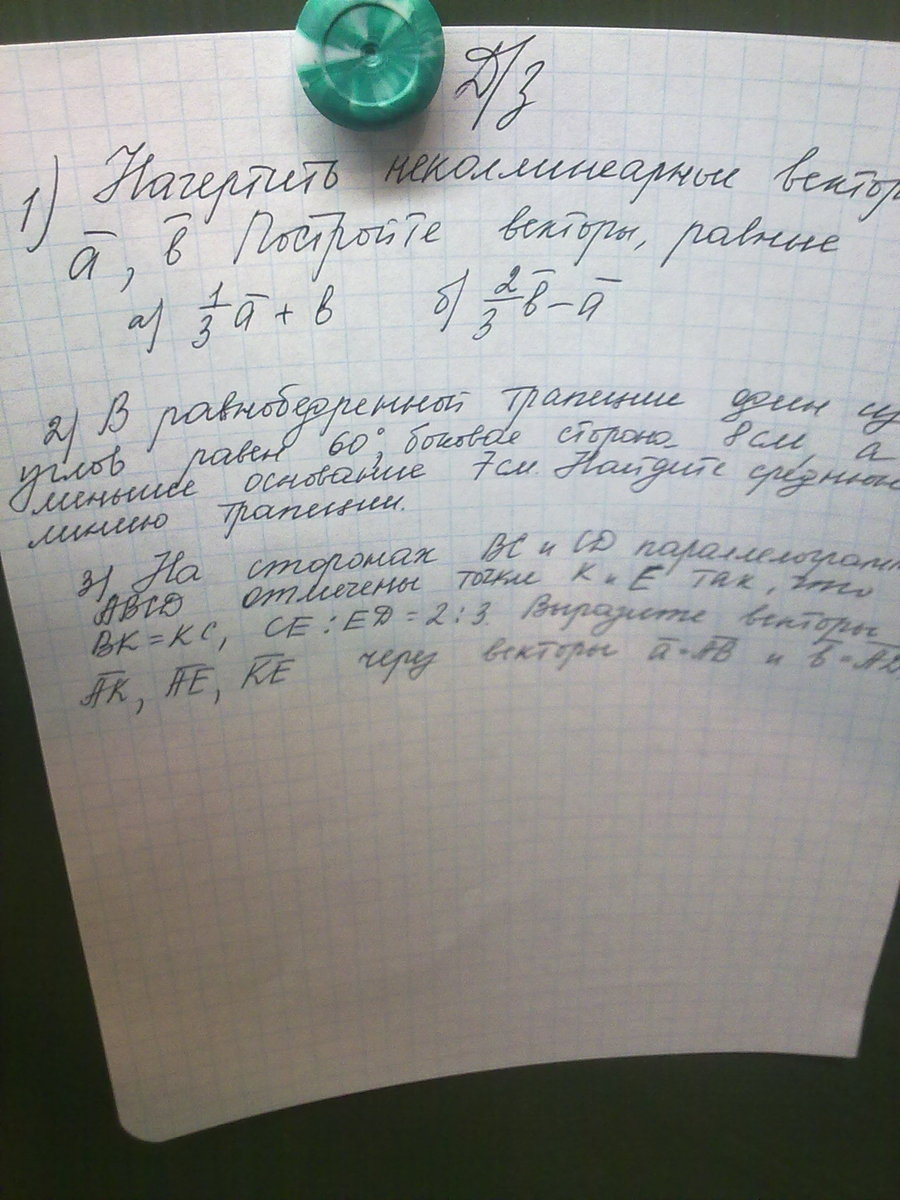 Д/з
1) Начертить неколлинеарные вектор
a̅, в̅ Постройте векторы, равные
а) 1/3 a̅ + в б) 2/3 в̅ - a̅
2) В равнобедренной трапеции один из
углов равен 60°, боковая сторона 8 см, а
меньшее основание 7 см. Найдите среднюю
линию трапеции.
3) На сторонах ВС и CD параллелограм
ABCD отмечены точки К и Е так, что
BK = KC, CE : ED = 2 : 3. Выразите векторы
A̅K̅, A̅E̅, K̅E̅ через векторы a̅ = A̅B̅ и в̅ = A̅D̅